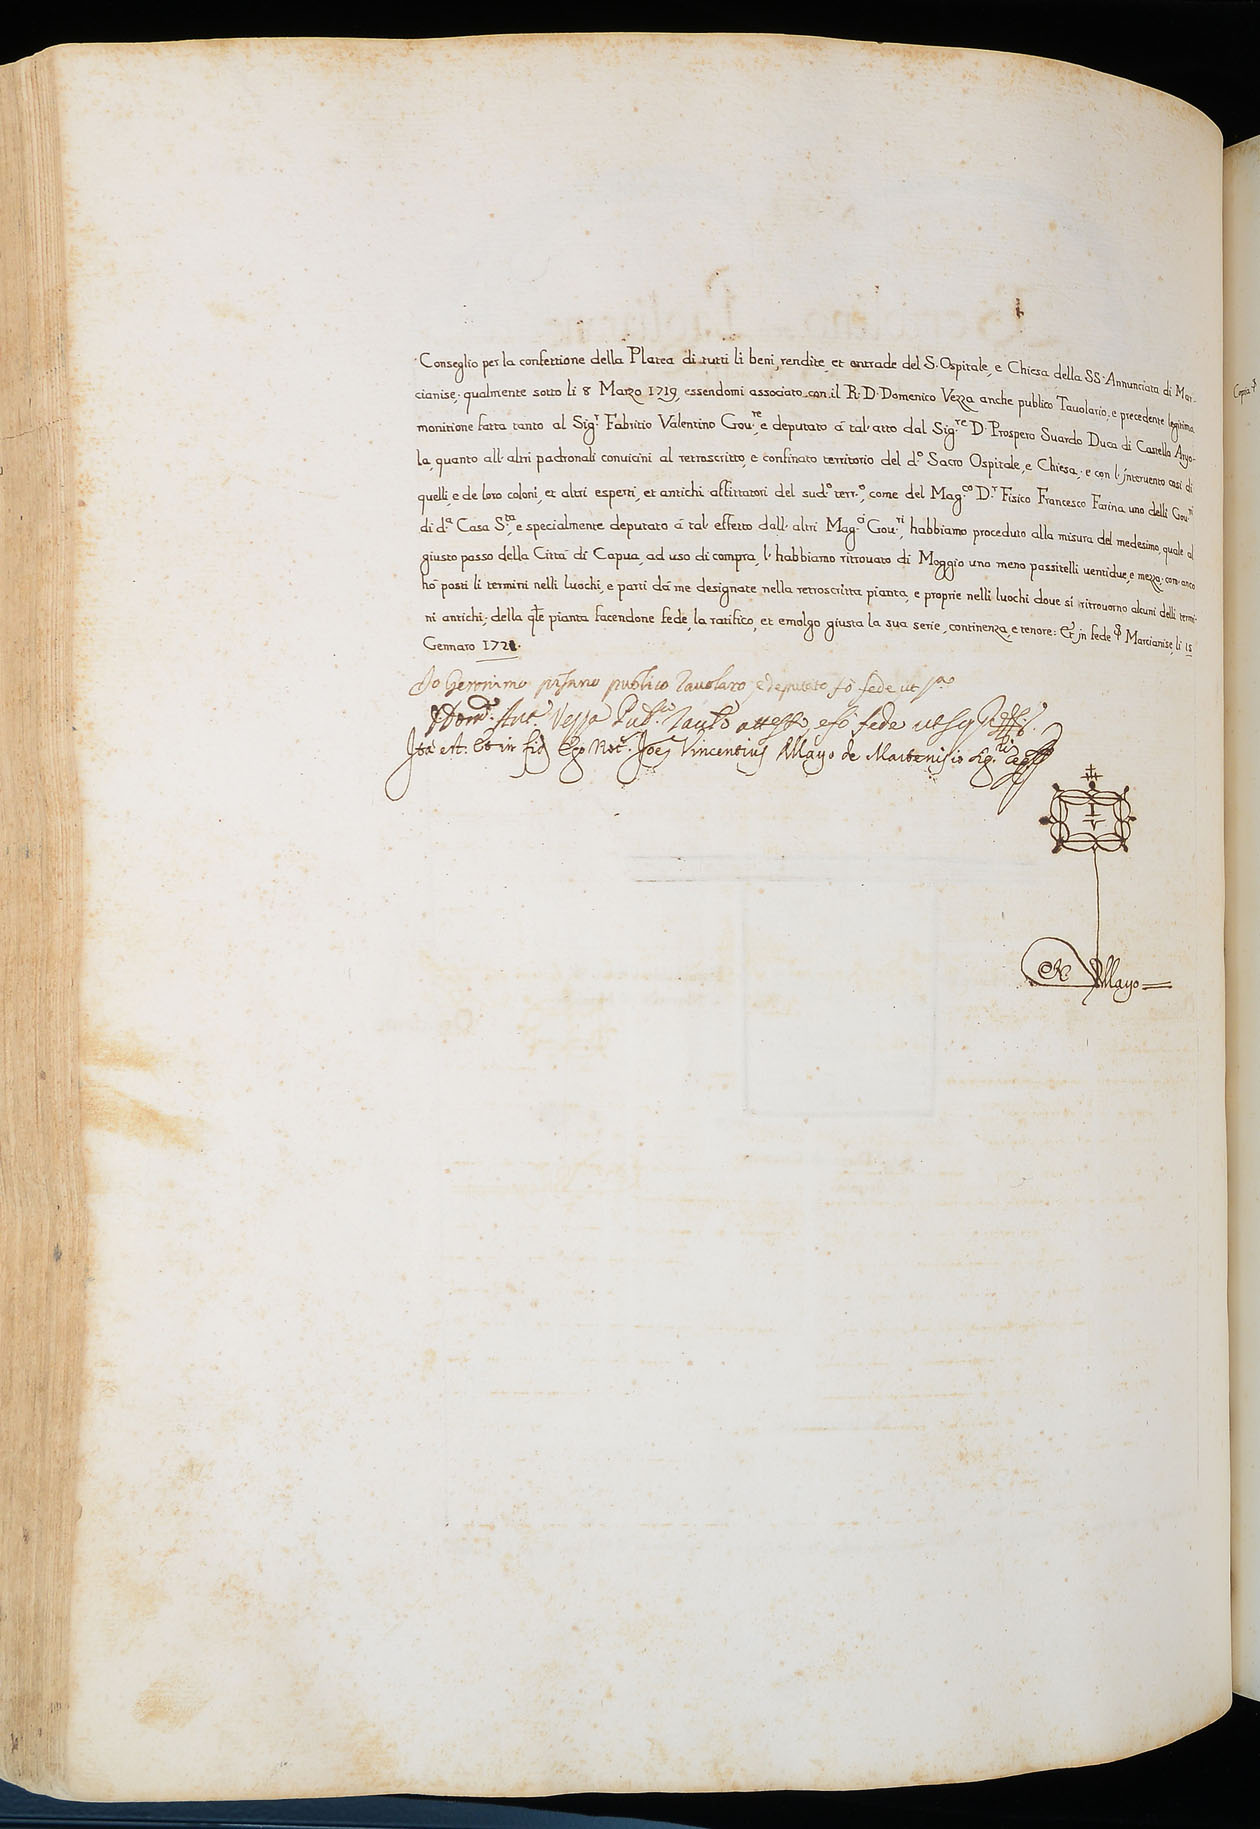 Conseglio per la confettione della Platea di tutti li beni, rendite, et entrade del S. Ospitale, e Chiesa della SS. Annunciata di Mar-
cianise; qualmente sotto li 8 Marzo 1719, essendomi associato con il R. D. Domenico Vezza anche publico Tavolario, e precedente legitima
monitione fatta tanto al Sig.r Fabritio Valentino Gou.re, e deputato á tal' atto dal Sig.re D. Prospero Suardo Duca di Castello Ayro-
la, quanto all' altri padronali convicini al retroscritto, e confinato territorio del d.o Sacro Ospitale, e Chiesa; e con l' intervento così di
quelli, e de loro coloni, et altri esperti, et antichi affittatori del sud.o terr.o, come del Mag.co D.r Fisico Francesco Farina uno delli Gou.ri
di d.a Casa S.ta, e specialmente deputato á tal' effetto dall' altri Mag.ci Gou.ri, habbiamo proceduto alla misura del medesimo, quale al
giusto passo della Cittá di Capua, ad uso di compra, l' habbiamo ritrovato di Moggio uno meno passitelli ventidue, e mezzo: com' anco
hò posti li termini nelli luochi, e parti dá me designate nella retroscritta pianta, e proprie nelli luochi dove si ritrovorno alcuni delli termi-
ni antichi; della qle pianta facendone fede, la ratifico, et emolgo giusta la sua serie, continenza, e tenore: Et in fede Marcianise, li 15
Gennaro 1721.
Io Geronimo pisano publico Tavolaro, e deputato fò fede ut sa
Dom. Ant. Vezza Pub.co Tavl.o attesto, e fò fede ut sa
Ita est. Et in fid. Ego Not. Joes Vincentius Mayo de Martenisio sig.
N Mayo
Copia